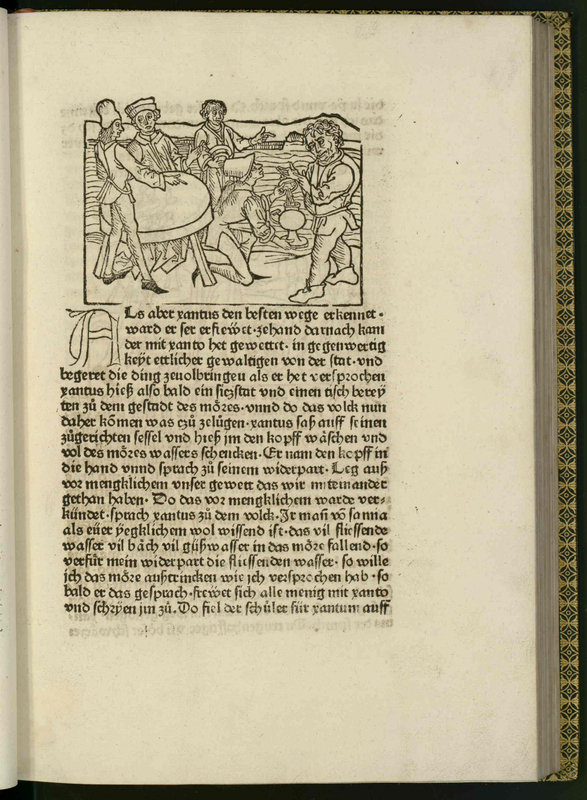 ALs aber xantus den besten wege erkennet ·
ward er ser erfrewet · zehand darnach kam
der mit xanto het gewettet · in gegenwertig
keyt ettlicher gewaltigen von der stat · vnd
begeret die ding zeuolbringen als er het versprochen
xantus hieß also bald ein siczstat vnd einen tisch berey
ten zů dem gestadt des mo͏̈res · vnnd do das volck nun
daher ko͏̈men was czů zelůgen · xantus saß auff seinen
zůgerichten sessel vnd hieß jm den kopff wa͏̈schen vnd
vol des mo͏̈res wassers schencken · Er nam den kopff in
die hand vnnd sprach zů seinem widerpart · Leg auß
vor mengklichem vnser gewett das wir miteinander
gethan haben · Do das vor mengklichem warde ver⸗
kündet · sprach xantus zů dem volck · Ir man̄ võ samia
als eüer yegklichem wol wissend ist · das vil fliessende
wasser vil ba͏̈ch vil güßwasser in das mo͏̈re fallend · so
verfür mein widerpart die fliessenden wasser · so wille
jch das mo͏̈re außtrincken wie jch versprochen hab · so
bald er das gesprach · frewet sich alle menig mit xanto
vnd schryen jm zů · Do fiel der schůler für xantum auff